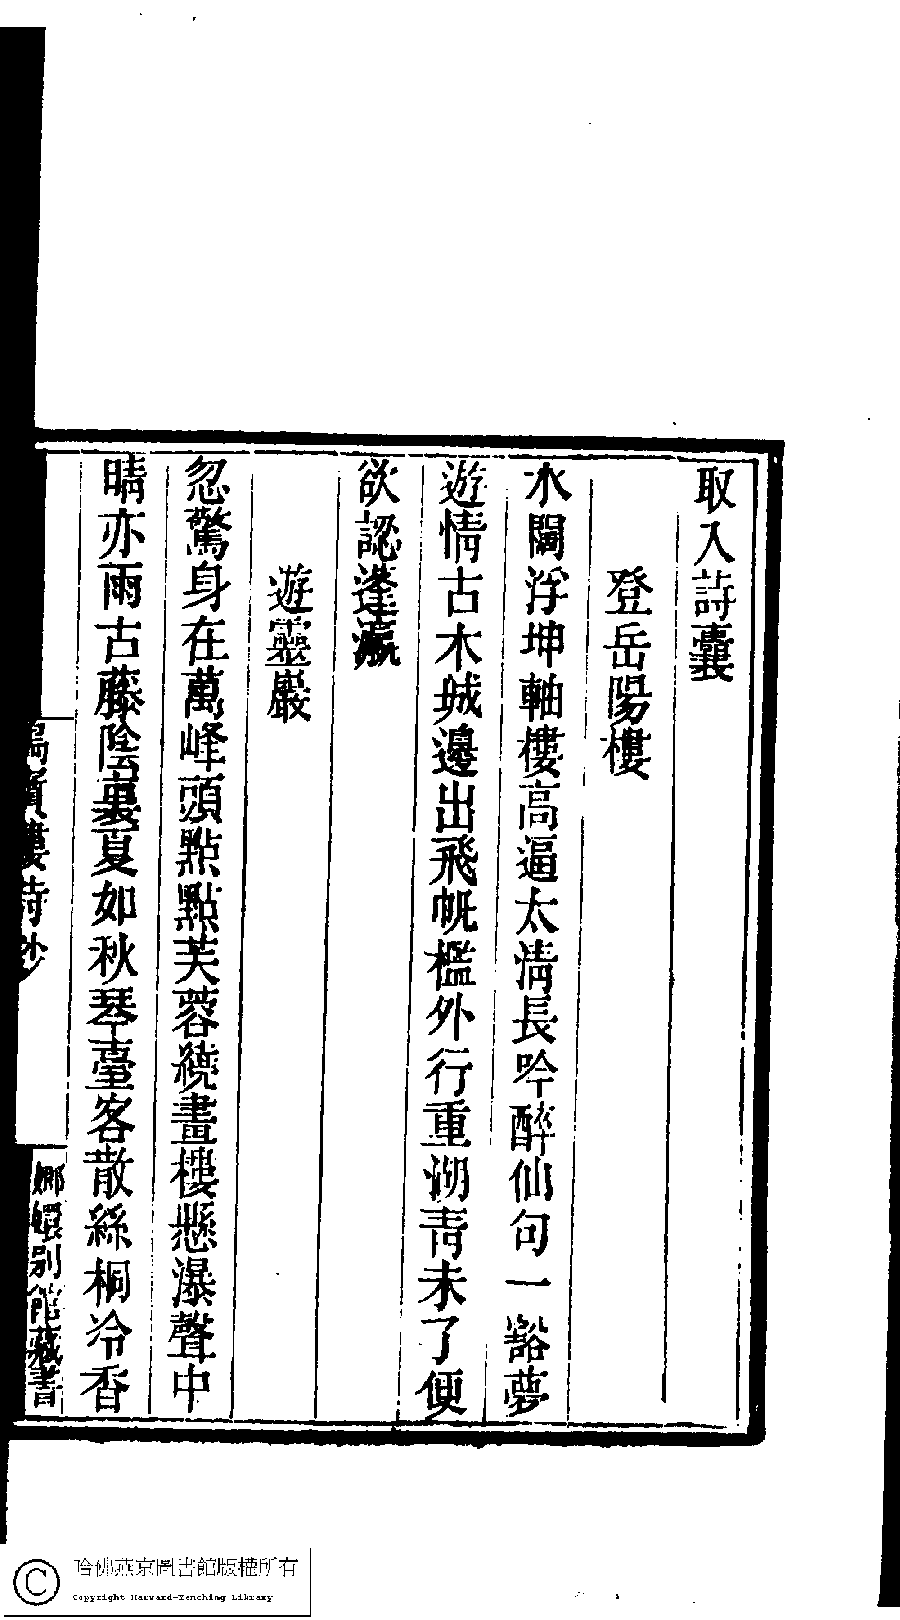 取入詩囊
登岳陽樓
水闊浮坤軸樓高逼太淸長吟醉仙句一豁夢
遊情古木城邊出飛帆檻外行重湖靑未了便
欲認蓬瀛
遊靈巖
忽驚身在萬峰頭點點芙蓉繞畫樓懸瀑聲中
晴亦雨古藤陰裏夏如秋琴臺客散絲桐冷香
樓詩鈔
嫏嬛別館藏書
哈佛燕京圖書館版權所有
Copyright Harvard-Yenching Library